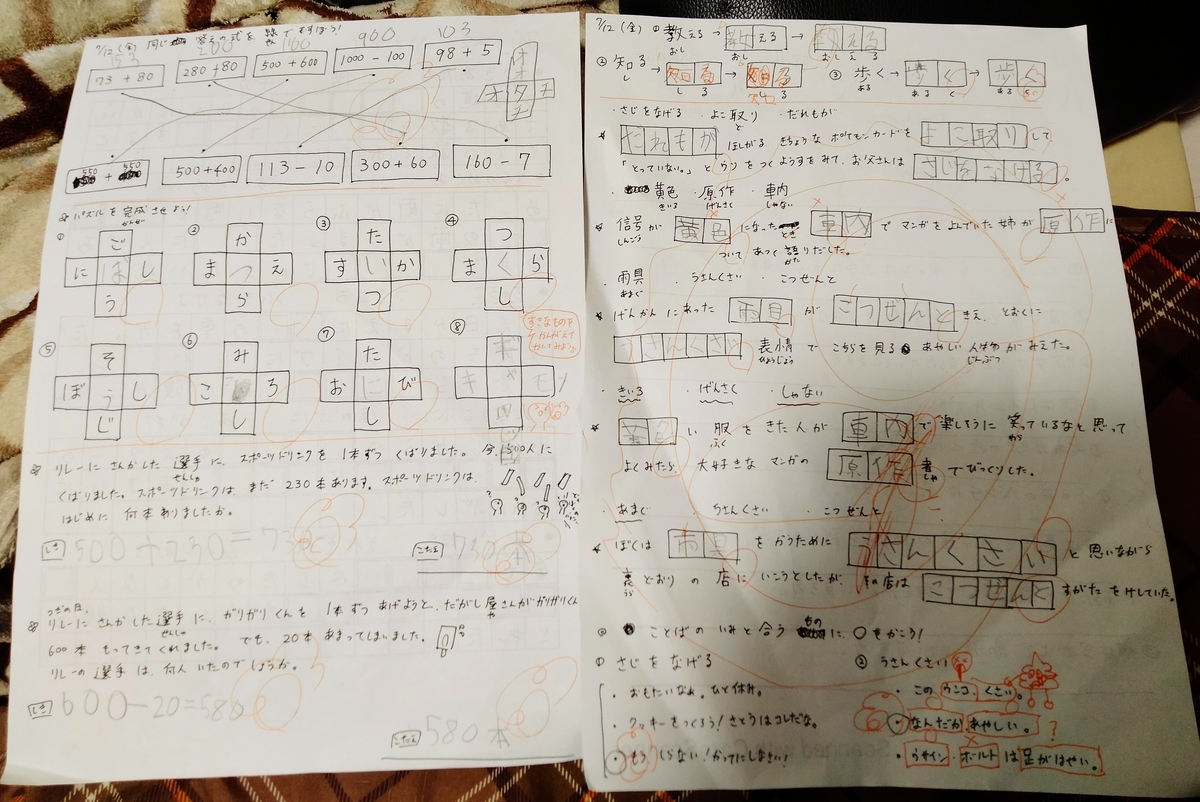 7/12(金) 同じ 答えの式を 線で むすぼう!
153
360
1100
900
103
73 + 80
280 + 80
500 + 600
1000 − 100
98 + 5
オ
オタチ
タ
チ
550 + 550
500 + 400
113 − 10
300 + 60
160 − 7
☆ パズルを完成させよう!
① ② ③ ④
ご か た つ
にぼし まつえ すいか まくら
う ら つ し
すきなものを
かんがえて
かいてみよう。
⑤ ⑥ ⑦ ⑧
そ み た
ぼうし こ ろ おにび キャモ
じ し し
☆ リレーに さんかした 選手に、スポーツドリンクを 1本ずつ くばりました。今、500人に
せんしゅ
くばりました。スポーツドリンクは、まだ 230本あります。スポーツドリンクは、
はじめに 何本ありましたか。
しき 500+230=730
こたえ 730本
つぎの日、
☆ リレーに さんかした選手に、ガリガリくんを 1本ずつ あげようと、だがし屋さんがガリガリくん
せんしゅ や
600本 もってきてくれました。でも、20本 あまってしまいました。
リレーの選手は、何人いたのでしょうか。
しき 600−20=580
こたえ 580本
7/12(金) ① 教える → 教える → 教える
おし おし おしえる
② 知る → 知る → 知る ③ 歩く → 歩く → 歩く
し しる しる ある あるく あるく
・さじをなげる ・よこ取り ・だれもが
と
☆ だれもが ほしがる きちょうな ポケモンカードを よこ取り して
「とっていない。」と ウソをつくようすをみて、お父さんは さじをなげる。
・黄色 ・原作 ・車内
きいろ げんさく しゃない
☆ 信号が 黄色 になったとき 車内 で マンガをよんでいた姉が 原作 に
しんごう
ついて あつく 語りだした。
かた
・雨具 ・うさんくさい ・こつぜんと
あまぐ
☆ げんかんにあった 雨具 が こつぜんと きえ、とおくに
うさんくさい 表情で こちらを見る あやしい人物がみえた。
ひょうじょう じんぶつ
・きいろ ・げんさく ・しゃない
☆ 黄色 い 服をきた人が 車内 で楽しそうに 笑っているなと思って
ふく わら
よくみたら、大好きな マンガの 原作 者 でびっくりした。
しゃ
・あまぐ ・うさんくさい ・こつぜんと
☆ ぼくは 雨具 をかうために うさんくさい と思いながら
裏どおりの店にいこうとしたが、その店は こつぜんと すがたをけしていた。
うら
◎ ことばの いみと合う ものに、○をかこう!
① さじをなげる
・おもたいなぁ。ひと休み。
・クッキーをつくろう! さとうはコレだな。
・もう、しらない! かってにしなさい!
② うさんくさい
・この ウンコ、くさい。
・なんだか あやしい。
・ウサイン・ボルトは 足がはやい。
?